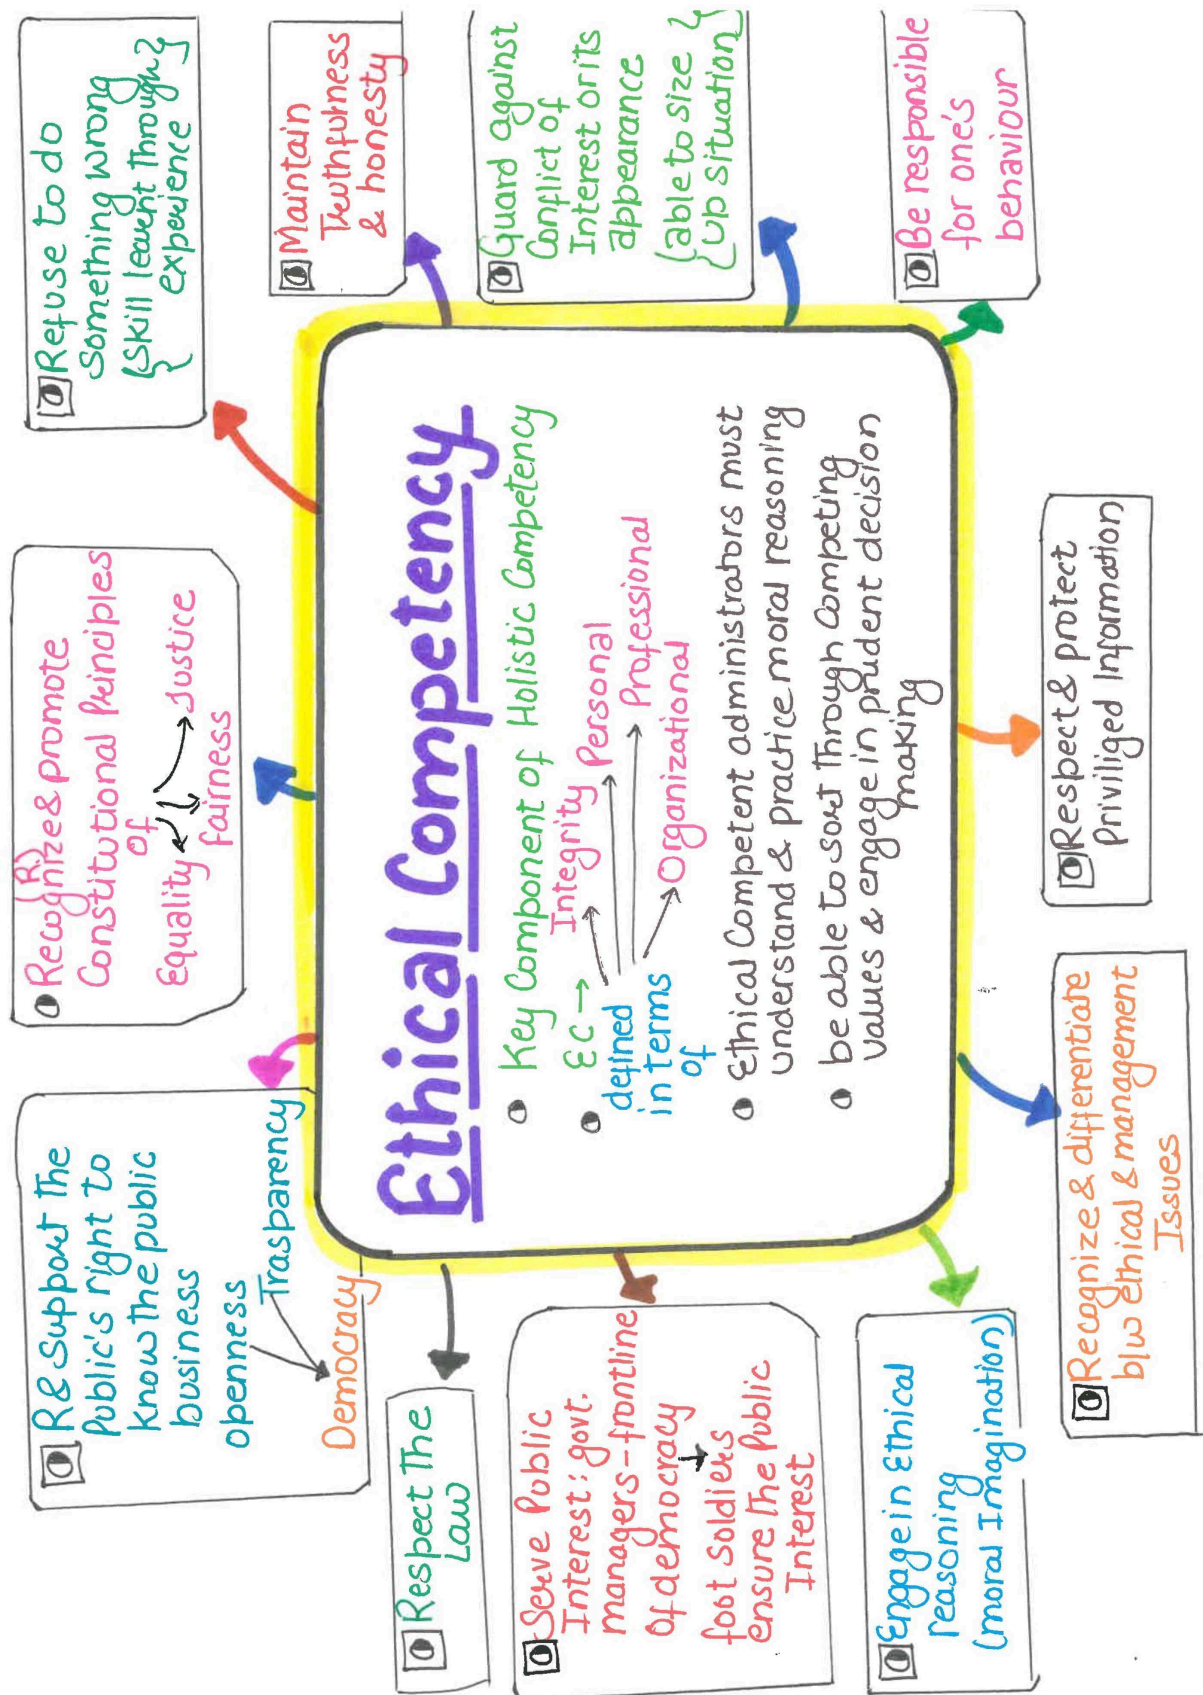 Ethical Competency
Key Component of Holistic Competency
EC →
defined
in terms
of
Integrity
Personal
Professional
Organizational
Ethical Competent administrators must
understand & practice moral reasoning
be able to sort through Competing
values & engage in prudent decision
making
R & Support the
Public's right to
know the public
business
openness
Trasparency
Democracy
(R)
Recognize & promote
Constitutional Principles
of
Equality
Justice
fairness
Refuse to do
Something wrong
{Skill learnt through}
{experience}
Maintain
Truthfulness
& honesty
Guard against
Conflict of
Interest or its
appearance
{able to size}
{up situation}
Be responsible
for one's
behaviour
Respect & protect
Priviliged Information
Recognize & differentiate
b/w ethical & management
Issues
Engage in Ethical
reasoning
(moral Imagination)
Serve Public
Interest : govt.
managers - frontline
of democracy
foot soldiers
ensure the Public
Interest
Respect The
Law